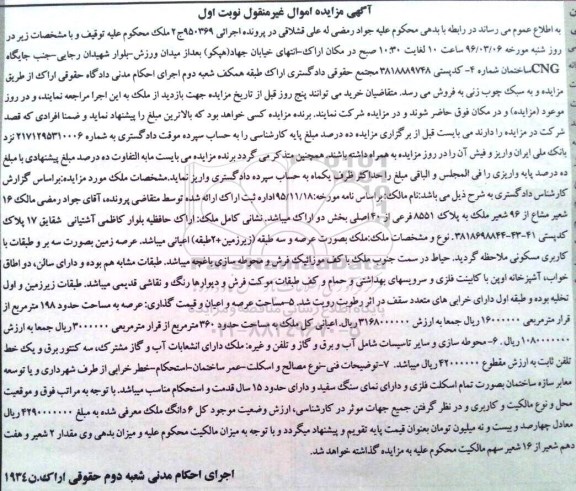 آگهی مزایده اموال غیرمنقول نوبت اول
به اطلاع عموم می رساند در رابطه با بدهی محکوم علیه جواد رمضی له علی قشلاقی در پرونده اجرائی ۹۵۰۳۶۹ج۲ ملک محکوم علیه توقیف و با مشخصات زیر در
روز شنبه مورخه ۹۶/۰۳/۰۶ ساعت ۱۰ لغایت ۱۰:۳۰ صبح در مکان اراک-انتهای خیابان جهاد(هپکو) بعداز میدان ورزش-بلوار شهیدان رجایی-جنب جایگاه
CNG-ساختمان شماره ۴- کدپستی ۳۸۱۸۸۸۹۷۴۸ مجتمع حقوقی دادگستری اراک طبقه همکف شعبه دوم اجرای احکام مدنی دادگاه حقوقی اراک از طریق
مزایده و به سبک چوب زنی به فروش می رسد. متقاضیان خرید می توانند پنج روز قبل از تاریخ مزایده جهت بازدید از ملک به این اجرا مراجعه نمایند، و در روز
موعود (مزایده) و در مکان فوق حاضر شوند و در مزایده شرکت نمایند. برنده مزایده کسی خواهد بود که بالاترین مبلغ را پیشنهاد نماید و ضمنا افرادی که قصد
شرکت در مزایده را دارند می بایست قبل از برگزاری مزایده ده درصد مبلغ پایه کارشناسی را به حساب سپرده موقت دادگستری به شماره ۲۱۷۱۲۹۵۳۱۰۰۰۶ نزد
بانک ملی ایران واریز و فیش آن را در روز مزایده به همراه داشته باشند. همچنین متذکر می گردد برنده مزایده می بایست مابه التفاوت ده درصد مبلغ پیشنهادی با مبلغ
ده درصد پایه واریزی را فی المجلس و الباقی مبلغ را حداکثر ظرف یکماه به حساب سپرده دادگستری واریز نماید.مشخصات ملک مورد مزایده:براساس گزارش
کارشناس دادگستری به شرح ذیل می باشد:نام مالک:براساس نامه مورخه:۹۵/۱۱/۱۸اداره ثبت اراک ارائه شده توسط متقاضی پرونده، آقای جواد رمضی مالک ۱۶
شعیر مشاع از ۹۶ شعیر ملک به پلاک ۸۵۵۱ فرعی از ۴۰ اصلی بخش دو اراک میباشد.نشانی کامل ملک: اراک حافظیه بلوار کاظمی آشتیانی شقایق ۱۷ پلاک
کدپستی ۴۱-۴۳-۳۸۱۸۶۹۸۸۴۴. نوع و مشخصات ملک:ملک بصورت عرصه و سه طبقه (زیرزمین+۲طبقه) اعیانی میباشد. عرصه زمین بصورت سه بر و طبقات با
کاربری مسکونی ملاحظه گردید. حیاط در سمت جنوب ملک با کف موزائیک فرش و محوطه سازی باغچه میباشد. طبقات مشابه هم بوده و دارای سالن، دو اطاق
خواب، آشپزخانه اوپن با کابینت فلزی و سرویسهای بهداشتی و حمام و کف طبقات موکت فرش و دیوارها رنگ و نقاشی قدیمی میباشد. طبقات زیرزمین و اول
تخلیه بوده و طبقه اول دارای خرابی های متعدد سقف در اثر رطوبت رویت شد. ۵-مساحت عرصه و اعیان و قیمت گذاری: عرصه به مساحت حدود ۱۹۸ مترمربع از
قرار مترمربعی ۱۶۰۰۰۰۰۰ ریال جمعا به ارزش ۳۱۶۸۰۰۰۰۰۰ریال.اعیانی کل ملک به مساحت حدود ۳۶۰ مترمربع از قرار مترمربعی ۳۰۰۰۰۰۰ ریال جمعا به ارزش
۱۰۸۰۰۰۰۰۰۰ ریال. ۶-محوطه سازی و سایر تاسیسات شامل آب و برق و گاز و تلفن و غیره: ملک دارای انشعابات آب و گاز مشترک، سه کنتور برق و یک خط
تلفن ثابت به ارزش مقطوع ۴۲۰۰۰۰۰۰ ریال میباشد. ۷-توضیحات فنی-نوع مصالح و اسکلت-عمر ساختمان-استحکام-خطر خرابی از طرف شهرداری و یا توسعه
معابر سازه ساختمان بصورت تمام اسکلت فلزی و دارای نمای سنگ سفید و دارای حدود ۱۵ سال قدمت و استحکام مناسب میباشد. با توجه به مراتب فوق و موقعیت
محل و نوع مالکیت و کاربری و در نظر گرفتن جمیع جهات موثر در کارشناسی، ارزش وضعیت موجود کل ۶ دانگ ملک معرفی شده به مبلغ ۴۲۹۰۰۰۰۰۰۰ ریال
معادل چهارصد و بیست و نه میلیون تومان بعنوان قیمت پایه تقویم و پیشنهاد میگردد و با توجه به میزان مالکیت محکوم علیه و میزان بدهی وی مقدار ۲ شعیر و هفت
دهم شعیر از ۱۶ شعیر سهم مالکیت محکوم علیه به مزایده گذاشته خواهد شد.
اجرای احکام مدنی شعبه دوم حقوقی اراک.ن۱۹۳۴